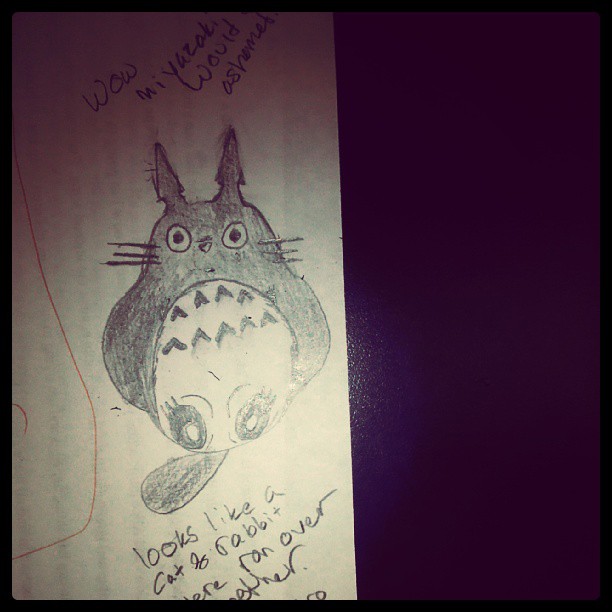 Wow
miyazaki
would
ashamed.
looks like a
cat & rabbit
were ran over